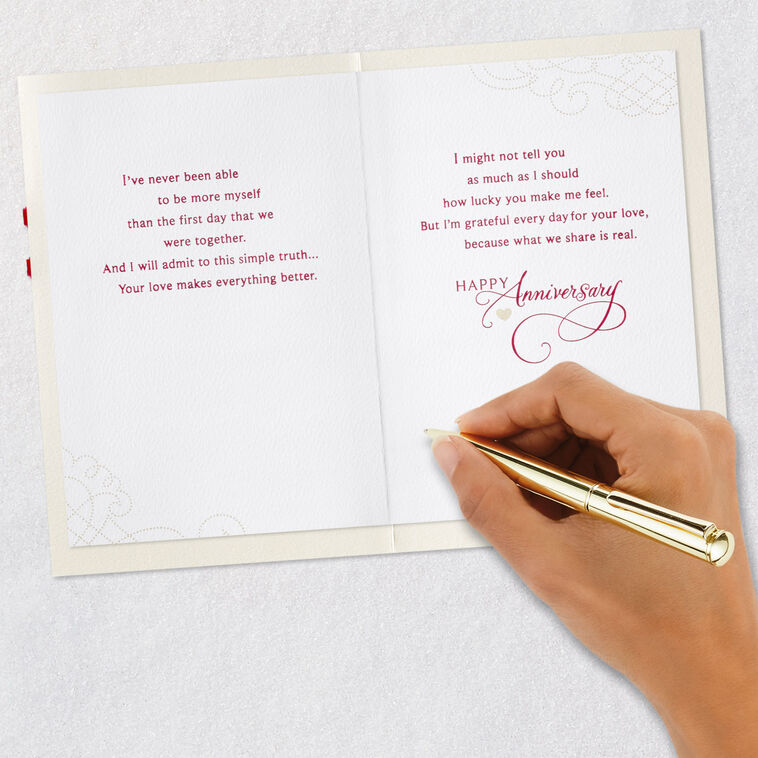 I've never been able
to be more myself
than the first day that we
were together.
And I will admit to this simple truth...
Your love makes everything better.
I might not tell you
as much as I should
how lucky you make me feel.
But I'm grateful every day for your love,
because what we share is real.
HAPPY Anniversary